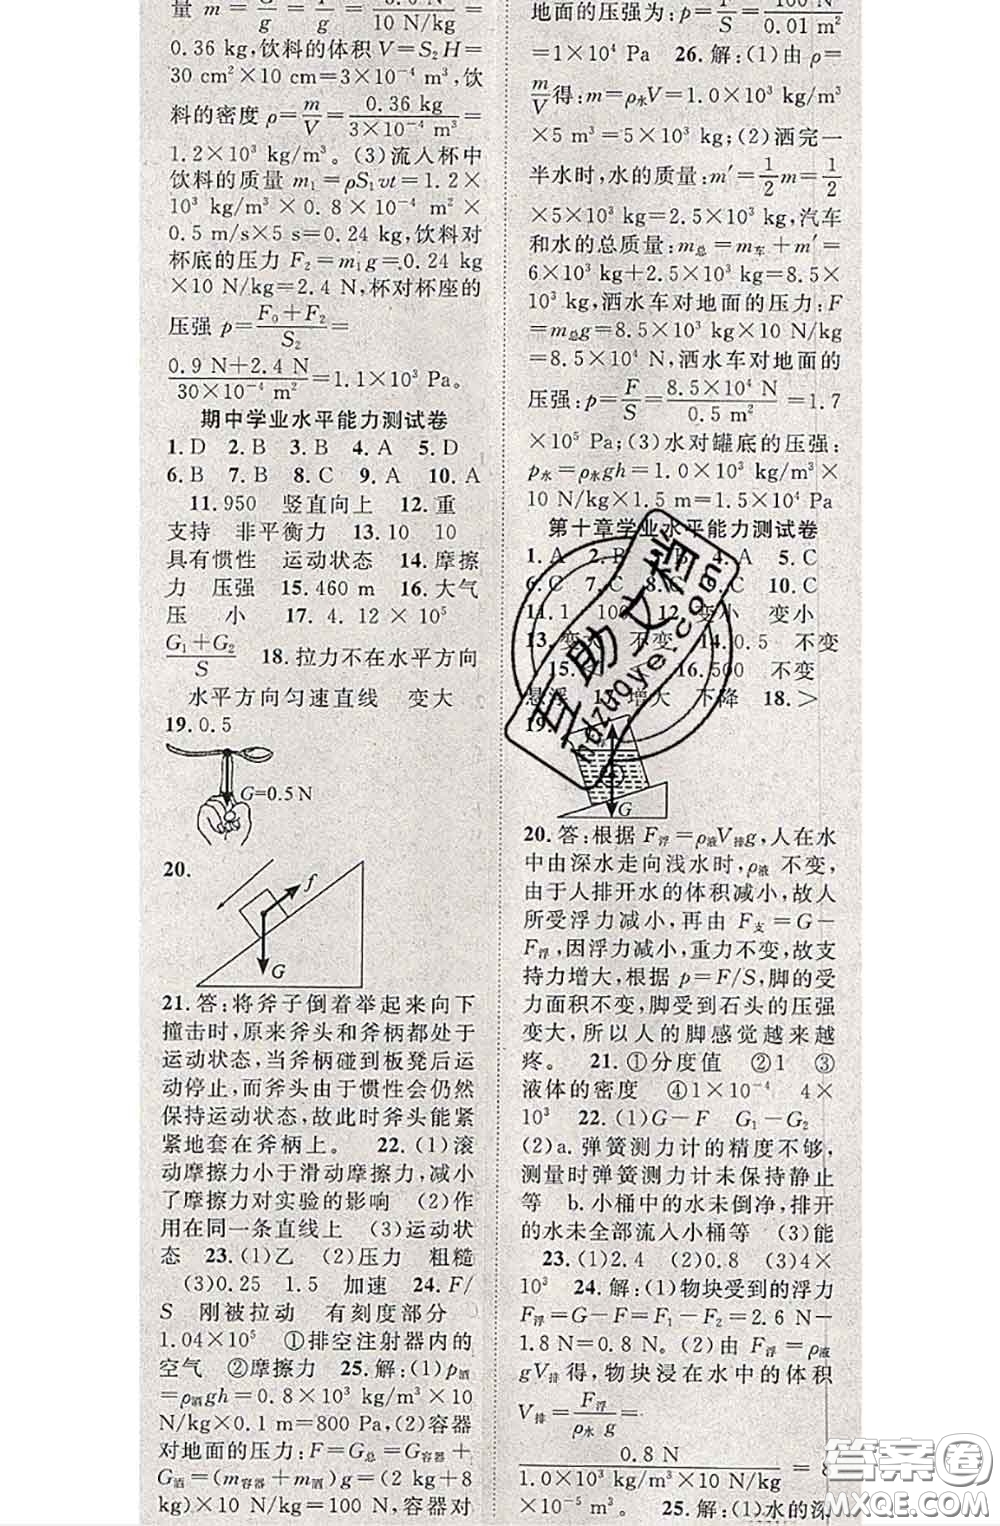 量 m=G/g=F/g=
10 N/kg
0.36 kg,饮料的体积 V=S₂H=
30 cm²×10 cm=3×10⁻⁴ m³,饮
料的密度 ρ=m/V=0.36 kg/3×10⁻⁴ m³=
1.2×10³ kg/m³。(3)流入杯中
饮料的质量 m₁=ρS₁vt=1.2×
10³ kg/m³×0.8×10⁻⁴ m²×
0.5 m/s×5 s=0.24 kg,饮料对
杯底的压力 F₂=m₁g=0.24 kg
×10 N/kg=2.4 N,杯对杯座的
压强 p=F₀+F₂/S₂=
0.9 N+2.4 N/30×10⁻⁴ m²=1.1×10³ Pa。
期中学业水平能力测试卷
1. D 2. B 3. B 4. A 5. D
6. B 7. B 8. C 9. A 10. A
11. 950 竖直向上 12. 重
支持 非平衡力 13. 10 10
具有惯性 运动状态 14. 摩擦
力 压强 15. 460 m 16. 大气
压 小 17. 4.12×10⁵
G₁+G₂/S 18. 拉力不在水平方向
水平方向匀速直线 变大
19. 0.5
G=0.5 N
20.
f
G
21. 答:将斧子倒着举起来向下
撞击时,原来斧头和斧柄都处于
运动状态,当斧柄碰到板凳后运
动停止,而斧头由于惯性会仍然
保持运动状态,故此时斧头能紧
紧地套在斧柄上。 22. (1)滚
动摩擦力小于滑动摩擦力,减小
了摩擦力对实验的影响 (2)作
用在同一条直线上 (3)运动状
态 23. (1)乙 (2)压力 粗糙
(3)0.25 1.5 加速 24. F/
S 刚被拉动 有刻度部分
1.04×10⁵ ①排空注射器内的
空气 ②摩擦力 25. 解:(1)p酒
=ρ酒gh=0.8×10³ kg/m³×10
N/kg×0.1 m=800 Pa,(2)容器
对地面的压力:F=G总=G容器+
G酒=(m容器+m酒)g=(2 kg+8
kg)×10 N/kg=100 N,容器对
地面的压强为:p=F/S=100 N/0.01 m²
=1×10⁴ Pa 26. 解:(1)由 ρ=
m/V得:m=ρ水V=1.0×10³ kg/m³
×5 m³=5×10³ kg;(2)洒完一
半水时,水的质量:m′=1/2m=1/2
×5×10³ kg=2.5×10³ kg,汽车
和水的总质量:m总=m车+m′=
6×10³ kg+2.5×10³ kg=8.5×
10³ kg,洒水车对地面的压力:F
=m总g=8.5×10³ kg×10 N/kg
=8.5×10⁴ N,洒水车对地面的
压强:p=F/S=8.5×10⁴ N/0.5 m²=1.7
×10⁵ Pa;(3)水对罐底的压强:
p水=ρ水gh=1.0×10³ kg/m³×
10 N/kg×1.5 m=1.5×10⁴ Pa
第十章学业水平能力测试卷
1. A 2. B 3. B 4. A 5. C
6. C 7. C 8. C 10. C
11. 1 100 12. 变小 变小
13. 变大 不变 14. 0.5 不变
15. 16. 500 不变
悬浮 17. 增大 不降 18. >
19.
G
20. 答:根据 F浮=ρ液V排g,人在水
中由深水走向浅水时,ρ液 不变,
由于人排开水的体积减小,故人
所受浮力减小,再由 F支=G-
F浮,因浮力减小,重力不变,故支
持力增大,根据 p=F/S,脚的受
力面积不变,脚受到石头的压强
变大,所以人的脚感觉越来越
疼。 21. ①分度值 ②1 ③
液体的密度 ④1×10⁻⁴ 4×
10³ 22. (1)G-F G₁-G₂
(2)a. 弹簧测力计的精度不够,
测量时弹簧测力计未保持静止
等 b. 小桶中的水未倒净,排开
的水未全部流入小桶等 (3)能
23. (1)2.4 (2)0.8 (3)4×
10³ 24. 解:(1)物块受到的浮力
F浮=G-F=F₁-F₂=2.6 N-
1.8 N=0.8 N。(2)由 F浮=ρ液
gV排得,物块浸在水中的体积
V排=F浮/ρ水 g=
0.8 N/1.0×10³ kg/m³×10 N/kg = 8
×10⁻⁵ m³。 25. 解:(1)水的深
互助文档
hdzuoye.com
答案圈
MXQE.COM